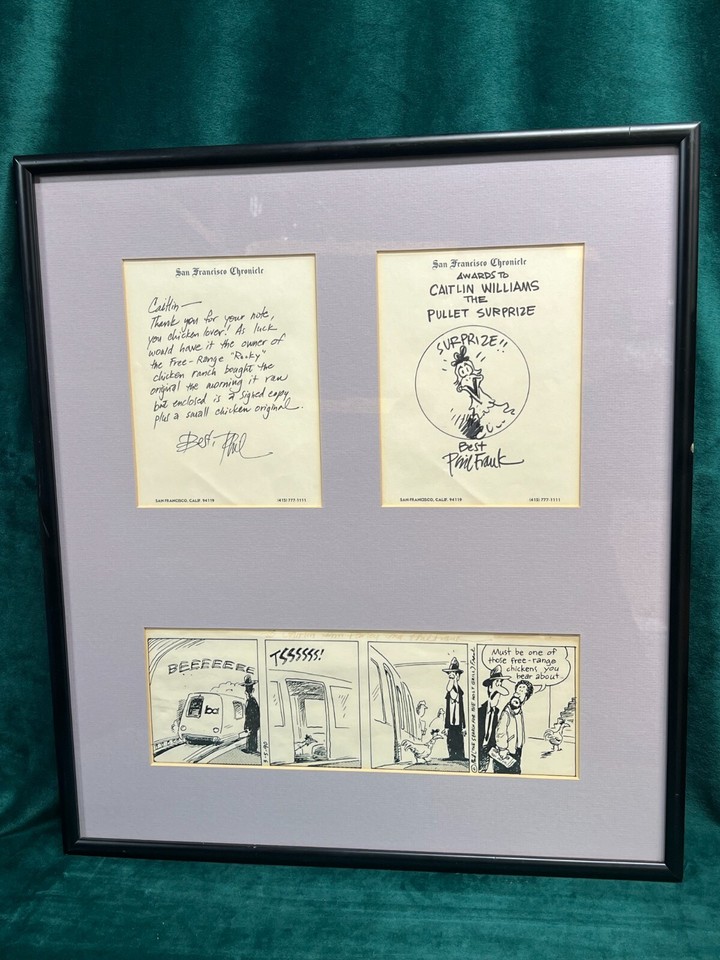 San Francisco Chronicle
Caitlin—
Thank you for your note,
you chicken lover! As luck
would have it the owner of
the Free-Range "Rocky"
chicken ranch bought the
original the morning it ran
but enclosed is a signed copy
plus a small chicken original.
Best, Phil
SAN FRANCISCO, CALIF. 94119 (415) 777-1111
San Francisco Chronicle
AWARDS TO
CAITLIN WILLIAMS
THE
PULLET SURPRIZE
SURPRIZE!!
Best
Phil Frank
SAN FRANCISCO, CALIF. 94119 (415) 777-1111
BEEEEEEE
ba
TSSSSSS!
Must be one of
those free-range
chickens you
hear about..